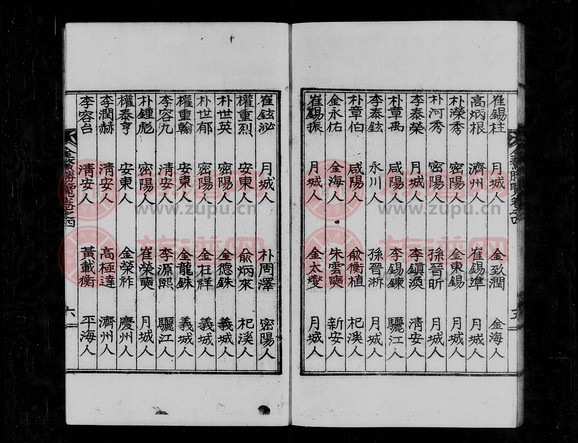 崔錫柱 月城人 金致潤 金海人
高炳根 濟州人 崔錫準 月城人
朴濚秀 密陽人 金東錫
朴河秀 密陽人 孫晉昕
李泰榮 咸陽人 李鎮渙 清安人
朴章禹 咸陽人 李錫鍊 驪江人
李泰鉉 永川人 孫晉浙 月城人
朴章伯 咸陽人 俞衡植 杞溪人
金永佑 金海人 朱雲奭 新安人
崔錫振 月城人 金太燮 月城人
崔鉉泌 月城人 朴周澤 密陽人
權重烈 安東人 俞炳來 杞溪人
朴世英 密陽人 金德銖 義城人
朴世郁 密陽人 金在祥 義城人
權重翰 安東人 金龍銖 義城人
李容九 清安人 李源熙 驪江人
朴鍾彪 密陽人 崔榮奭 月城人
權泰亨 安東人 金榮祚 慶州人
李潤赫 清安人 高極達 濟州人
李容台 清安人 黃載衡 平海人
六
www.zupu.cn
www.zupu.cn